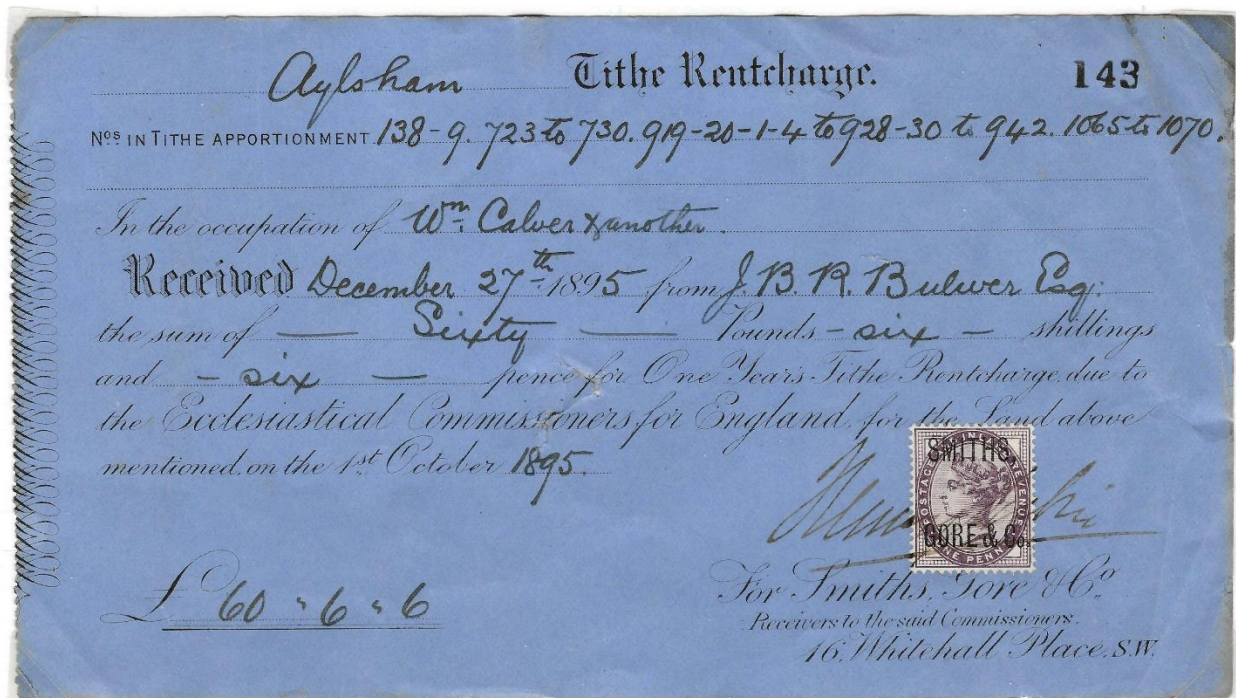 Aylsham Tithe Rentcharge. 143
Nos IN TITHE APPORTIONMENT 138-9. 723 to 730. 919-20-1-4 to 928-30 to 942. 1065 to 1070.
In the occupation of Wm. Calver & another.
Received December 27th 1895 from J. B. R. Bulwer Esq:
the sum of — Sixty — Pounds - six - shillings
and - six — pence for One Year's Tithe Rentcharge, due to
the Ecclesiastical Commissioners for England, for the Land above
mentioned, on the 1st October 1895.
SMITHS,
POSTAGE & INLAND REVENUE
GORE & Co.
ONE PENNY
For Smiths, Gore & Co.
£ 60 " 6 " 6
Receivers to the said Commissioners.
16, Whitehall Place, S.W.